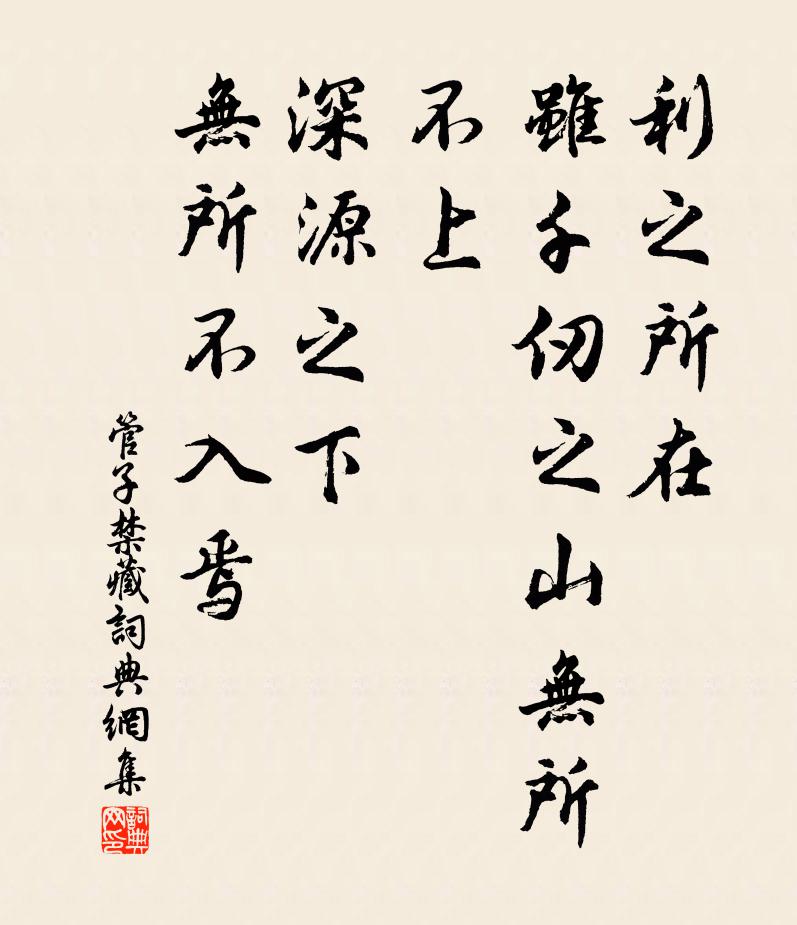 利之所在
雖千仞之山無所
不上
深源之下
無所不入焉
管子禁藏詞典網集
詞典
网印